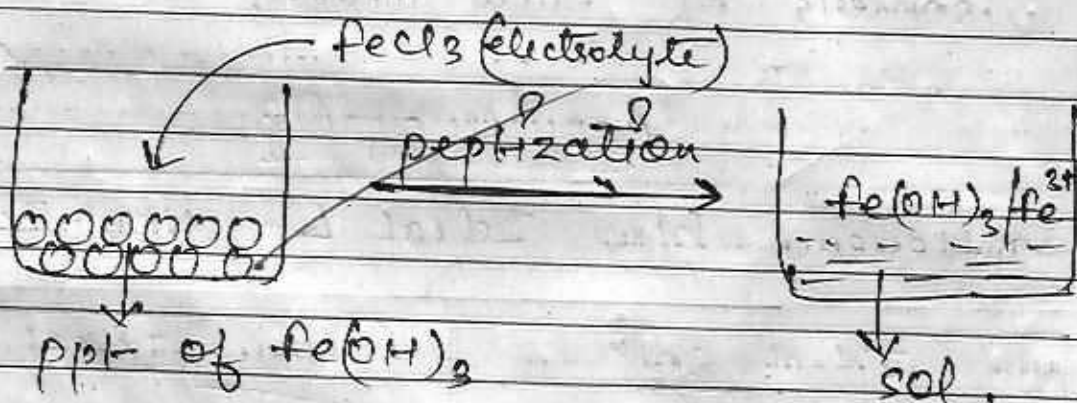 FeCl3 (electrolyte)
peptization
Fe(OH)3/Fe3+
ppt of Fe(OH)3
sol.